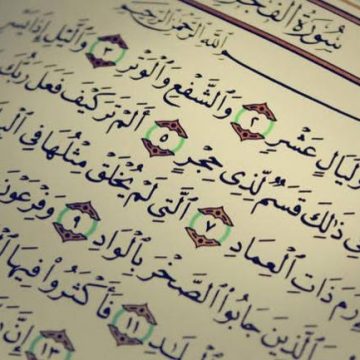 سُورَةُ الْفَجْرِ
اللَّهِ الرَّحْمَٰنِ الرَّحِيمِ
وَلَيَالٍ عَشْرٍ ٢ وَالشَّفْعِ وَالْوَتْرِ ٣ وَاللَّيْلِ إِذَا يَسْرِ
ذَٰلِكَ قَسَمٌ لِّذِي حِجْرٍ ٥ أَلَمْ تَرَ كَيْفَ فَعَلَ رَبُّكَ
رَمَ ذَاتِ الْعِمَادِ ٧ الَّتِي لَمْ يُخْلَقْ مِثْلُهَا فِي
الَّذِينَ جَابُوا الصَّخْرَ بِالْوَادِ ٩ وَفِرْعَوْنَ
١١ فَأَكْثَرُوا فِيهَا
١٣ إِنَّ